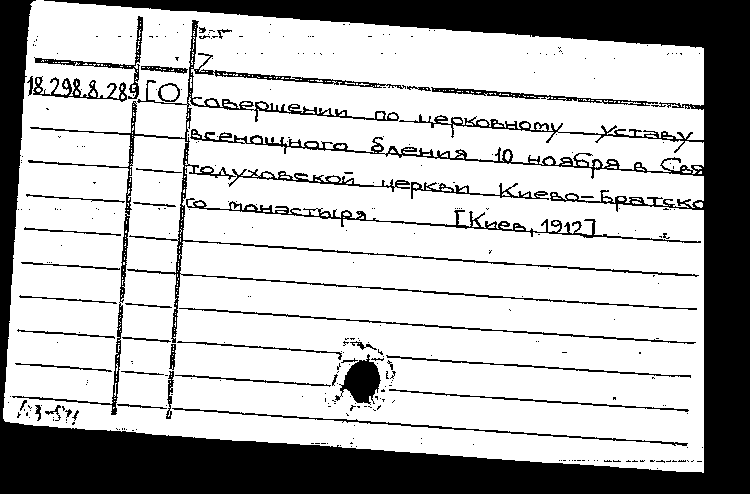 18.298.8.289 [О совершении по церковному уставу
всенощного бдения 10 ноября в Свя
тодуховской церкви Киево-Братско
го монастыря. [Киев, 1912].